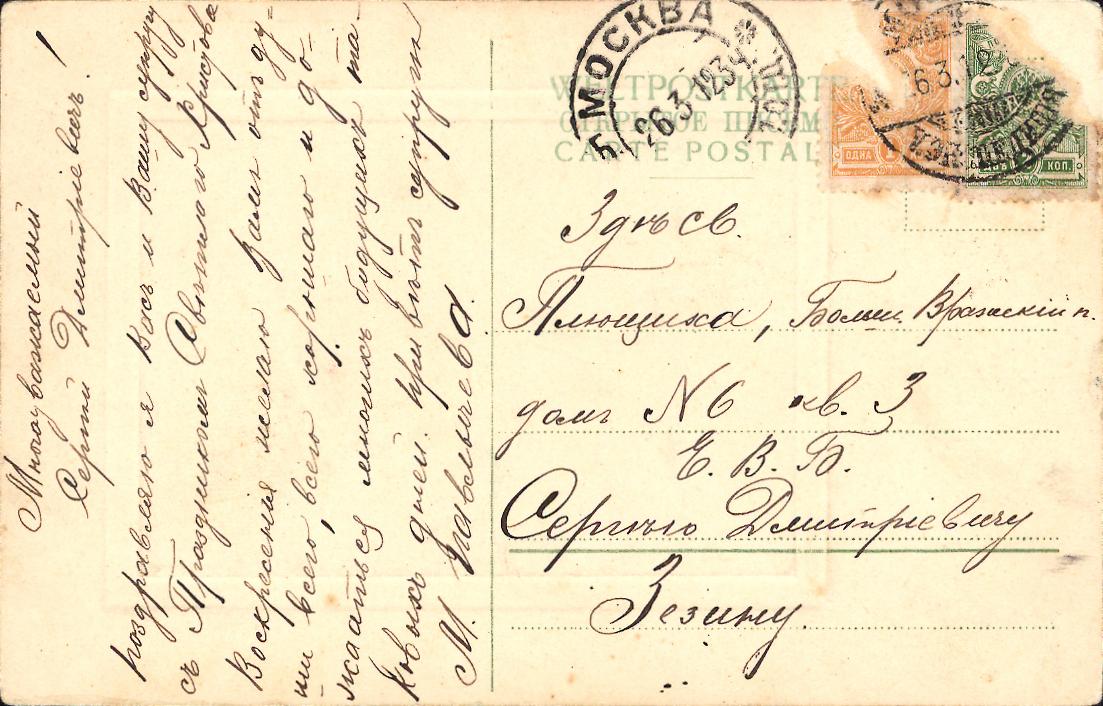 Многоуважаемый
Сергѣй Дмитріевичъ!
поздравляю я Васъ и Вашу супругу
съ Праздникомъ Свѣтлаго Христова
Воскресения желаю Вамъ отъ ду-
ши всего, всего хорошаго и до-
жаться многихъ будущихъ та-
ковыхъ дней. привѣтъ супругѣ
М. Павлычева.
WELTPOSTKARTE
ОТКРЫТОЕ ПИСЬМО
CARTE POSTALE
МОСКВА
26.3.12
ОДНА 1
КОП.
Здѣсв.
Плющиха, Больш. Вражскій п.
домъ № 6 кв. 3
Е. В. Б.
Сергѣю Дмитріевичу
Зезину.